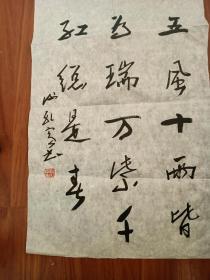 五風十雨皆
为瑞万紫千
红總是春